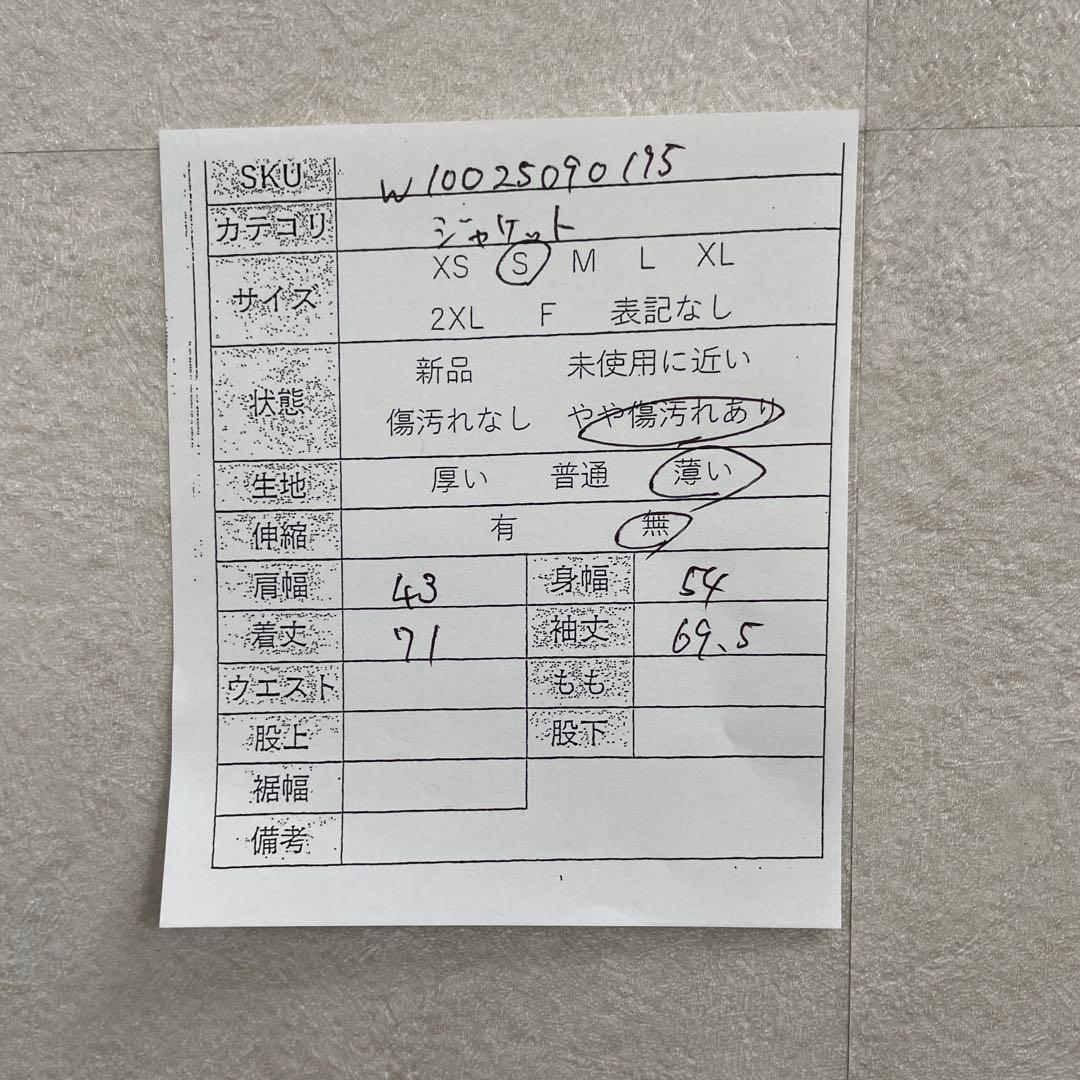 SKU W10025090195
カテゴリ ジャケット
サイズ XS S M L XL
2XL F 表記なし
状態 新品 未使用に近い
傷汚れなし やや傷汚れあり
生地 厚い 普通 薄い
伸縮 有 無
肩幅 43 身幅 54
着丈 71 袖丈 69.5
ウエスト もも
股上 股下
裾幅
備考